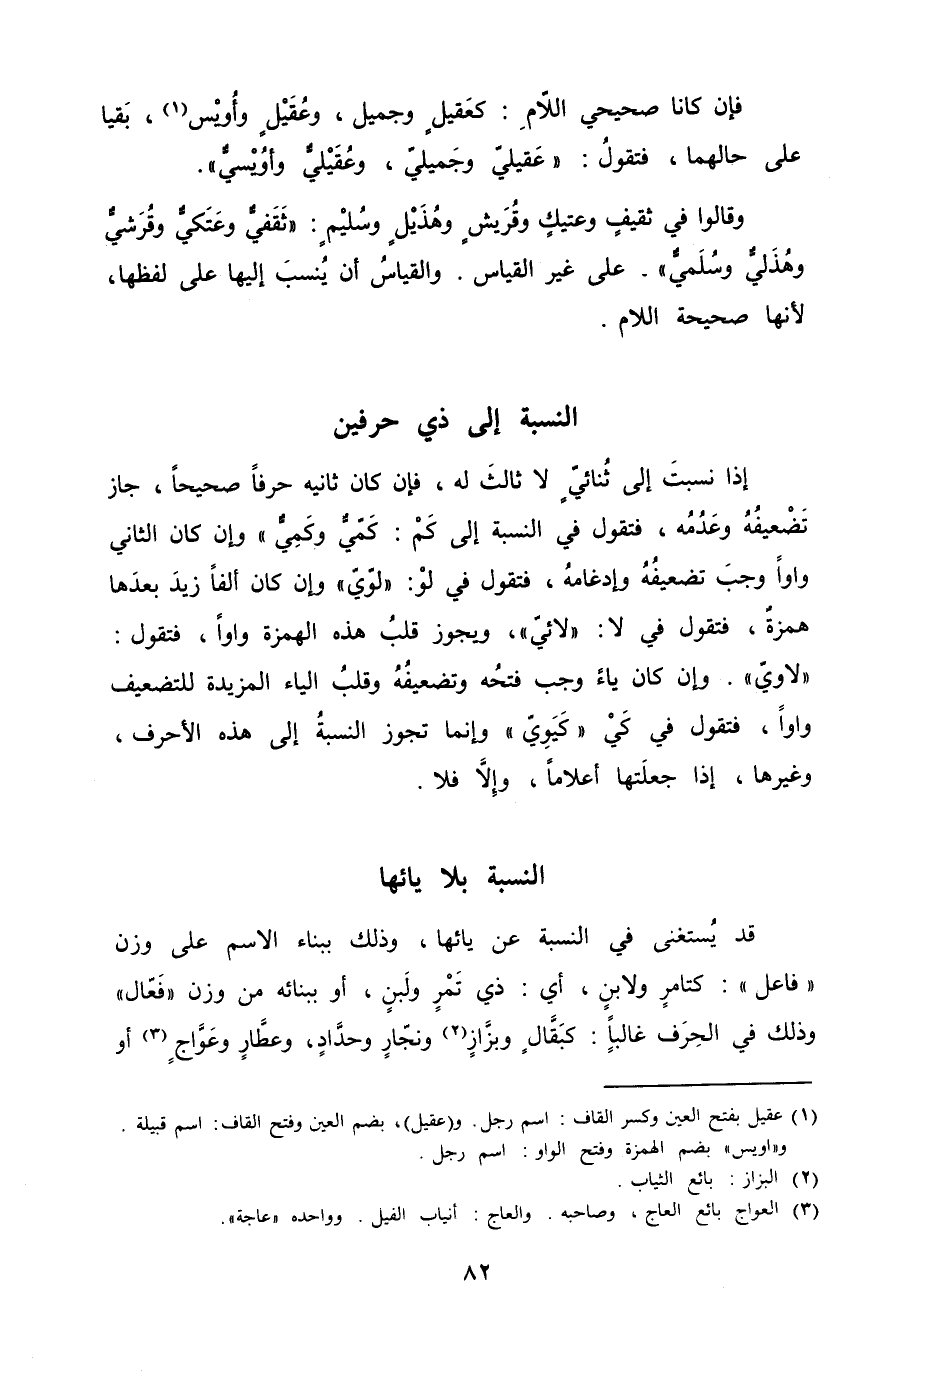 فإن كانا صحيحي اللّامِ : كعَقيلٍ وجميل ، وعُقَيْلٍ وأُويْس(١) ، بَقيا
على حالهما ، فتقولُ : « عَقيليّ وجَميليّ ، وعُقَيْليٌّ وأوُيْسيٌّ».
وقالوا في ثقيفٍ وعتيكٍ وقُرَيشٍ وهُذَيْلٍ وسُليْمٍ : «ثَقَفيٌّ وعَتَكيٌّ وقُرَشيٌّ
وهُذَليٌّ وسُلَميٌّ» . على غير القياس . والقياسُ أن يُنسبَ إليها على لفظها،
لأنها صحيحة اللام .
النسبة إلى ذي حرفين
إذا نسبتَ إلى ثُنائيٍّ لا ثالثَ له ، فإن كان ثانيه حرفاً صحيحاً ، جاز
تَضْعيفُهُ وعَدُمُه ، فتقول في النسبة إلى كَمْ : كَمّيٌّ وكَمِيٌّ » وإن كان الثاني
واواً وجبَ تضعيفُهُ وإدغامهُ ، فتقول في لوْ: «لوّيّ» وإن كان ألفاً زيدَ بعدَها
همزةٌ ، فتقول في لا: «لائيّ»، ويجوز قلبُ هذه الهمزة واواً ، فتقول :
«لاويّ» . وإن كان ياءً وجب فتحُه وتضعيفُهُ وقلبُ الياء المزيدة للتضعيف
واواً ، فتقول في كَيْ « كَيَوِيّ » وإنما تجوز النسبةُ إلى هذه الأحرف ،
وغيرها ، إذا جعلَتها أعلاماً ، وإلَّا فلا .
النسبة بلا يائها
قد يُستغنى في النسبة عن يائها ، وذلك ببناء الاسم على وزن
« فاعل » : كتامرٍ ولابنٍ ، أي : ذي تَمْرٍ ولَبنٍ ، أو ببنائه من وزن «فَعّال»
وذلك في الحِرَف غالباً : كبَقَّالٍ وبزَّازٍ(٢) ونجّارٍ وحدَّادٍ، وعطَّارٍ وعَوَّاجٍ(٣) أو
(١) عقيل بفتح العين وكسر القاف : اسم رجل. و(عقيل)، بضم العين وفتح القاف: اسم قبيلة .
و«اويس» بضم الهمزة وفتح الواو : اسم رجل .
(٢) البزاز : بائع الثياب .
(٣) العواج بائع العاج ، وصاحبه . والعاج : أنياب الفيل . وواحده «عاجة».
٨٢